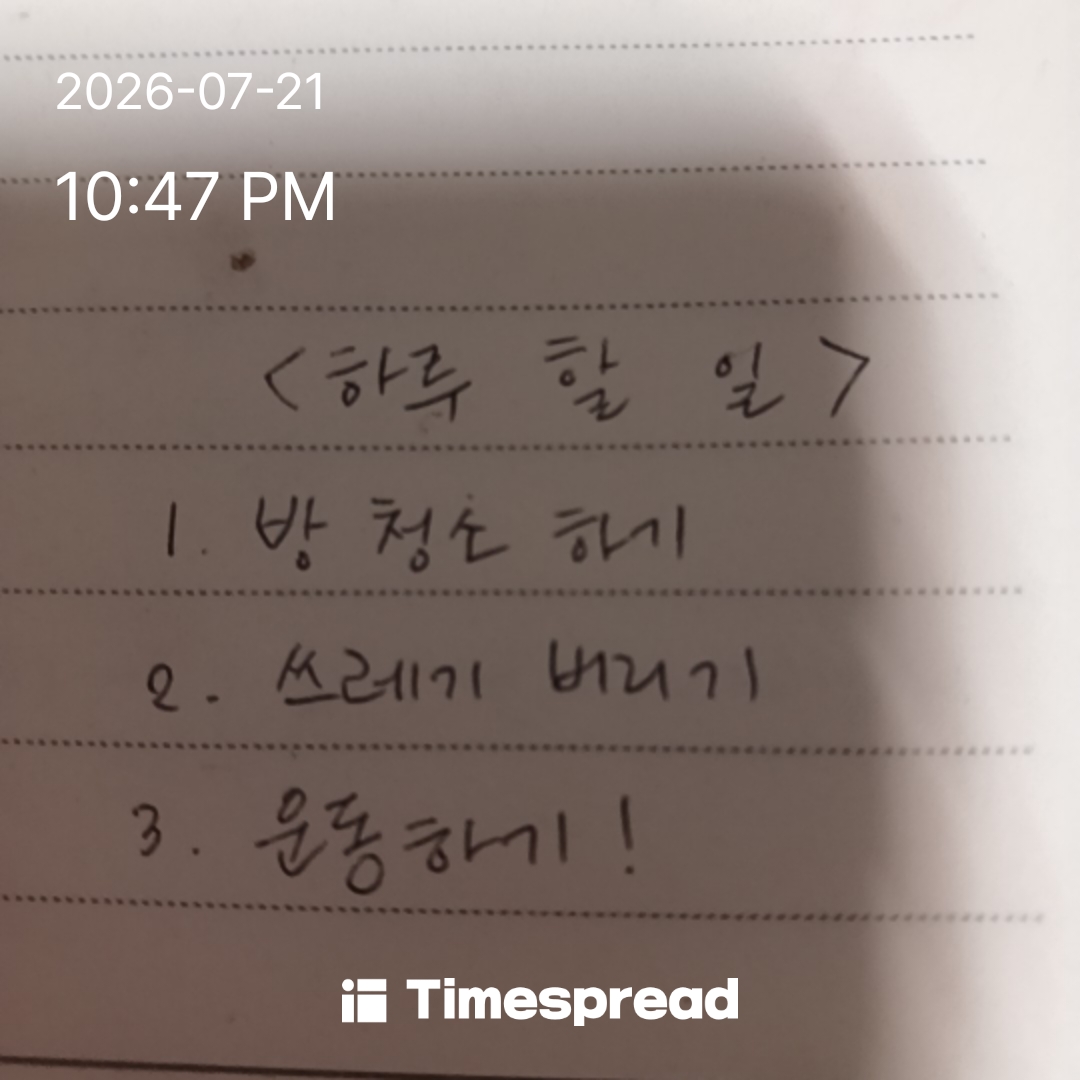 2026-07-21
10:47 PM
<하루 할 일>
1. 방 청소 하기
2. 쓰레기 버리기
3. 운동하기!
Timespread